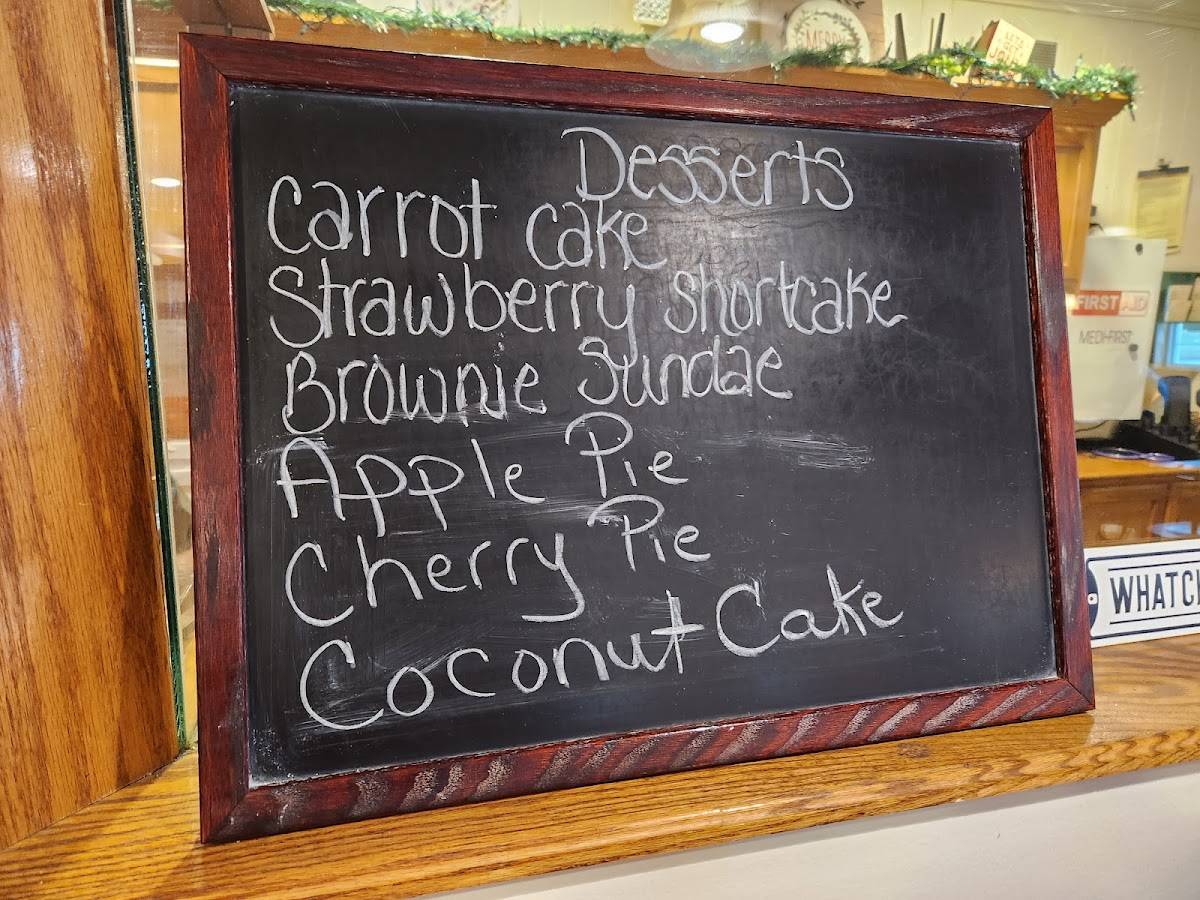 MERRY
Desserts
Carrot Cake
Strawberry Shortcake
Brownie Sundae
Apple Pie
Cherry Pie
Coconut Cake
FIRST AID
MEDI-FIRST